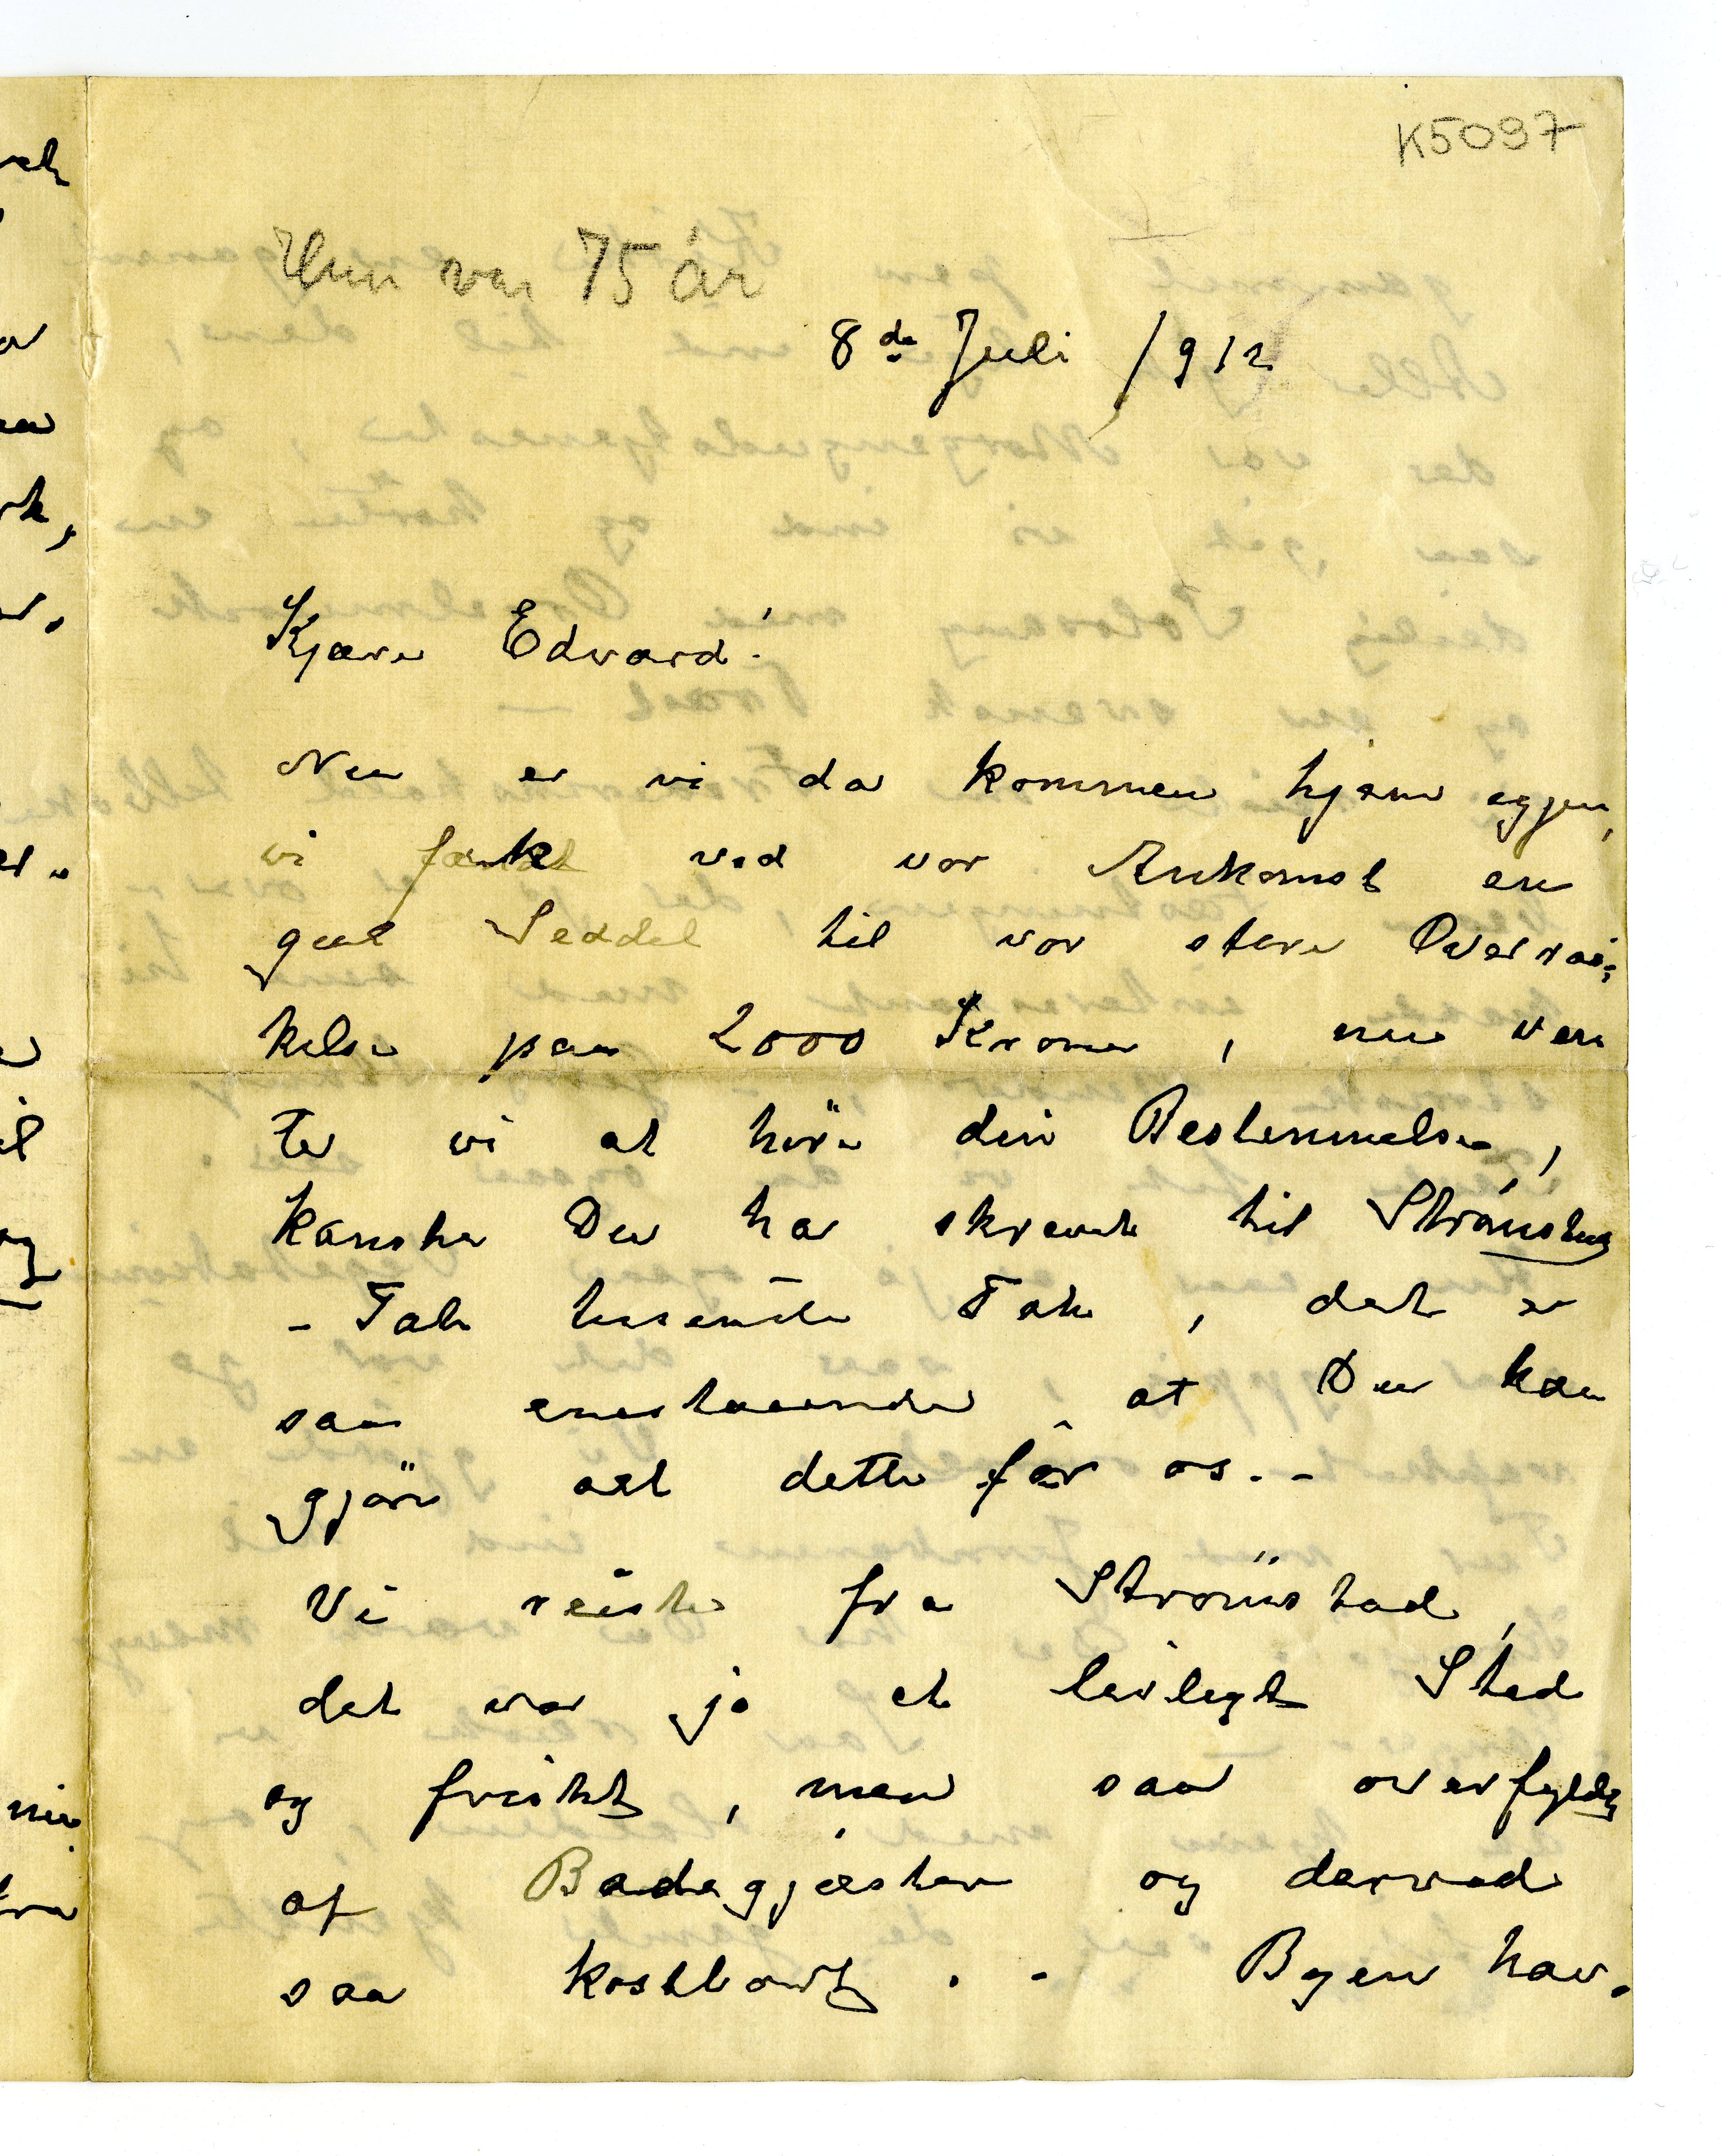 K5097
Hun var 75 år
8de Juli 1912
Kjære Edvard!
Nu er vi da kommen hjem igjen,
vi fandt ved vor Ankomst en
gul Seddel til vor store Overras-
kelse paa 2000 Kroner, nu ven
ter vi at höre din Bestemmelse,
Kanske Du har skrevet til Strömstad
- Tak tusende Tak, det er
saa enestaaende, at Du kan
gjöre alt dette for os. -
Vi reiste fra Strömstad,
det var ja et leiligt Sted
og friskt, men saa overfyldt
af Badegjæster og derved
saa kostbart. - Byen har